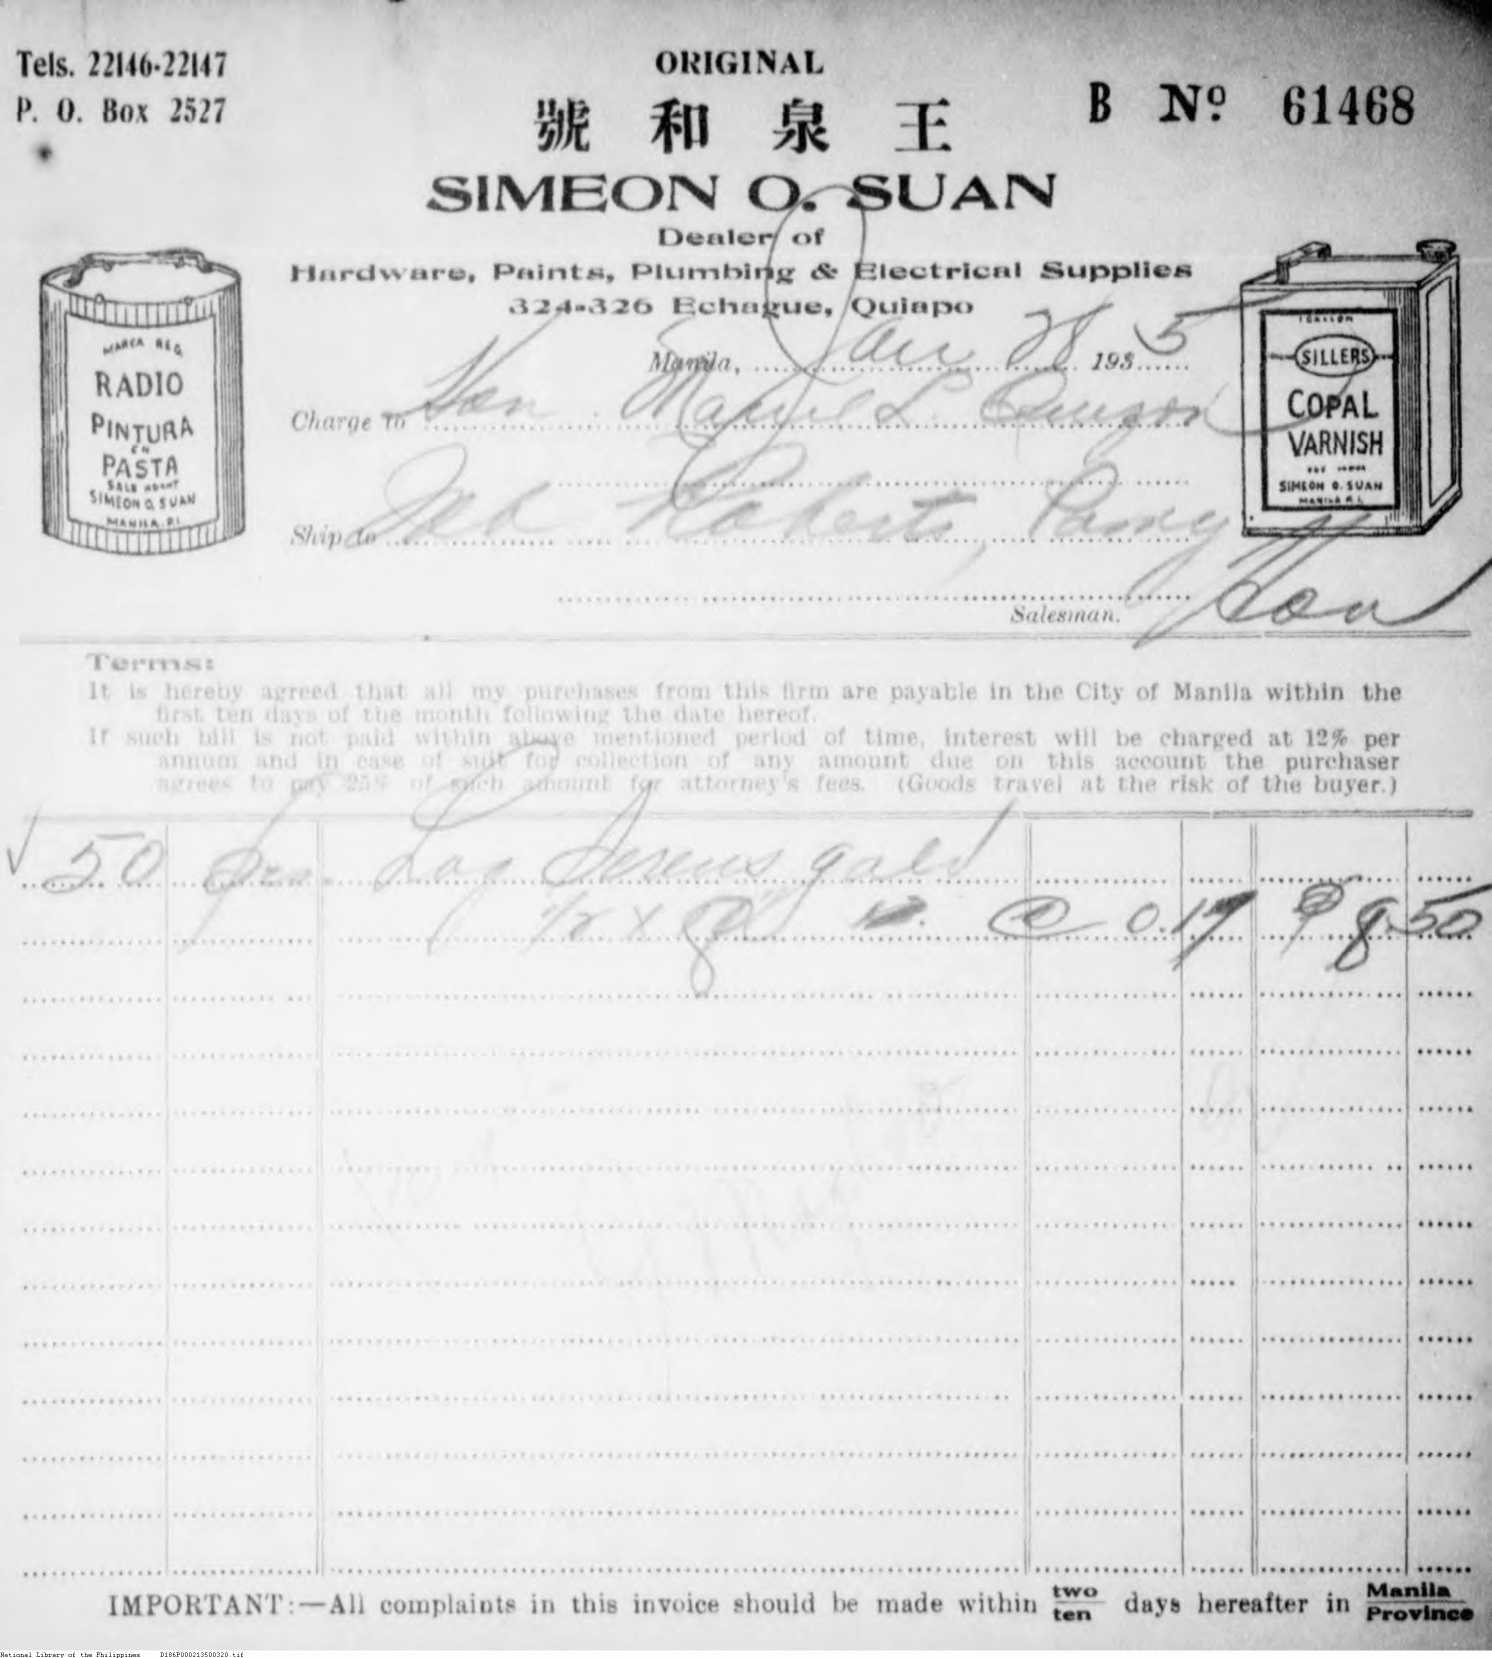 Tels. 22146-22147
P. O. Box 2527
ORIGINAL
B Nº 61468
號 和 泉 王
SIMEON O. SUAN
Dealer of
Hardware, Paints, Plumbing & Electrical Supplies
324-326 Echague, Quiapo
Manila, Jan 28 1935
MARCA REG.
RADIO
PINTURA
EN
PASTA
SIMEON O. SUAN
MANILA P.I.
1 GALLON
SILLERS
COPAL
VARNISH
SIMEON O. SUAN
MANILA P.I.
Charge to Hon. Manuel L. Quezon
Ship to Roberts, Pasay
Salesman.
Terms:
It is hereby agreed that all my purchases from this firm are payable in the City of Manila within the
first ten days of the month following the date hereof.
If such bill is not paid within above mentioned period of time, interest will be charged at 12% per
annum and in case of suit for collection of any amount due on this account the purchaser
agrees to pay 25% of such amount for attorney's fees. (Goods travel at the risk of the buyer.)
50 pcs. Lag Screws gald
1/2 x 8 @ 0.17 ₱ 8.50
IMPORTANT:—All complaints in this invoice should be made within two days hereafter in Manila
ten Province
National Library of the Philippines D186P000213500320.tif